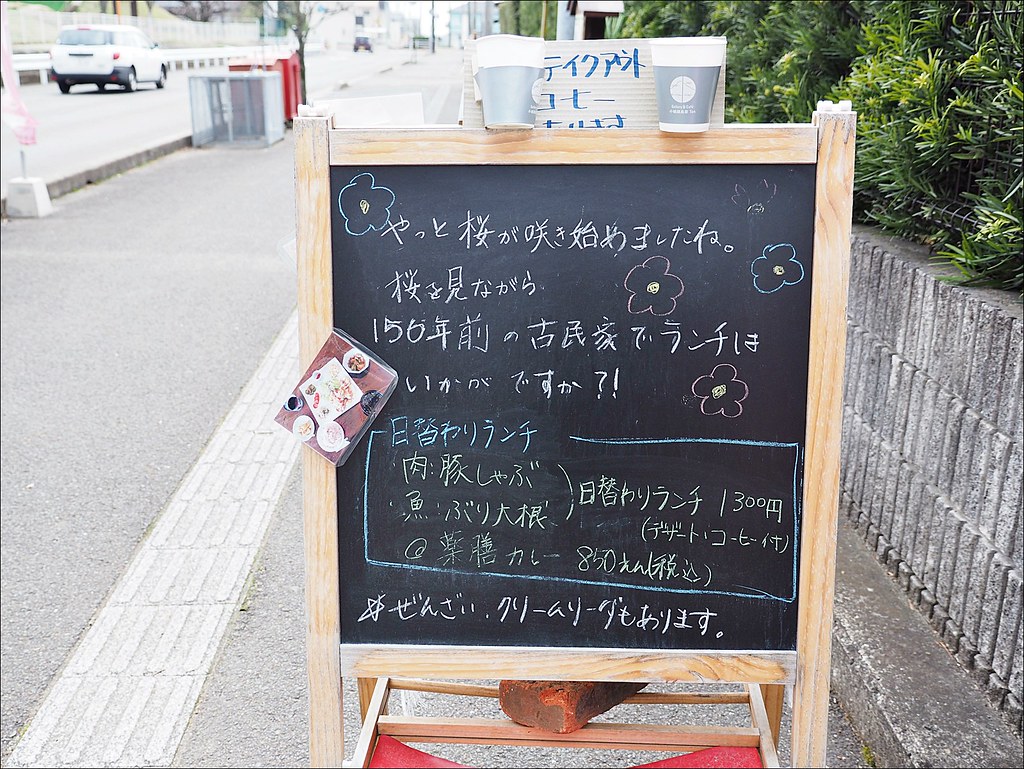 テイクアウト
コーヒー
あります
やっと桜が咲き始めましたね。
桜を見ながら
150年前の古民家でランチは
いかがですか?!
日替わりランチ
・肉:豚しゃぶ
・魚:ぶり大根
日替わりランチ 1300円
(デザート・コーヒー付)
@薬膳カレー 850えん(税込)
＊ぜんざい、クリームソーダもあります。